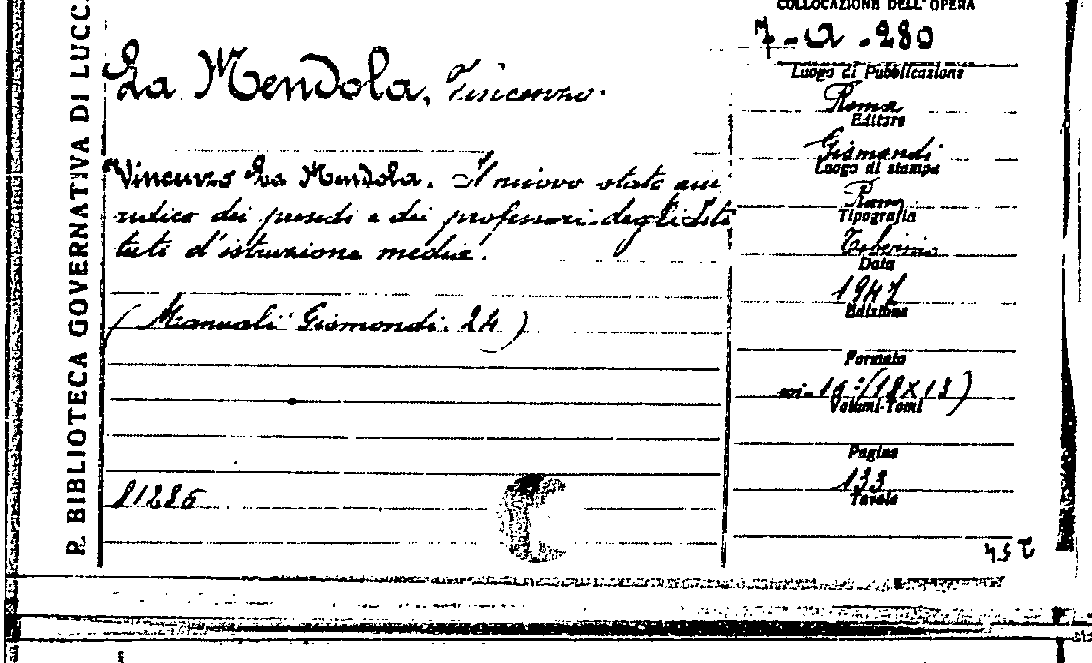 R. BIBLIOTECA GOVERNATIVA DI LUCC
La Mendola, Vincenzo.
Vincenzo La Mendola. Il nuovo stato giu
ridico dei presidi e dei professori degli Isti
tuti d'istruzione media.
(Manuali Gismondi. 24)
81286
COLLOCAZIONE DELL'OPERA
7-A-280
Luogo di Pubblicazione
Roma
Editore
Gismondi
Luogo di stampa
Roma
Tipografia
Tiberina
Data
1947
Edizione
Formato
in-16°(18x13)
Volumi-Tomi
Pagine
133
Tavole